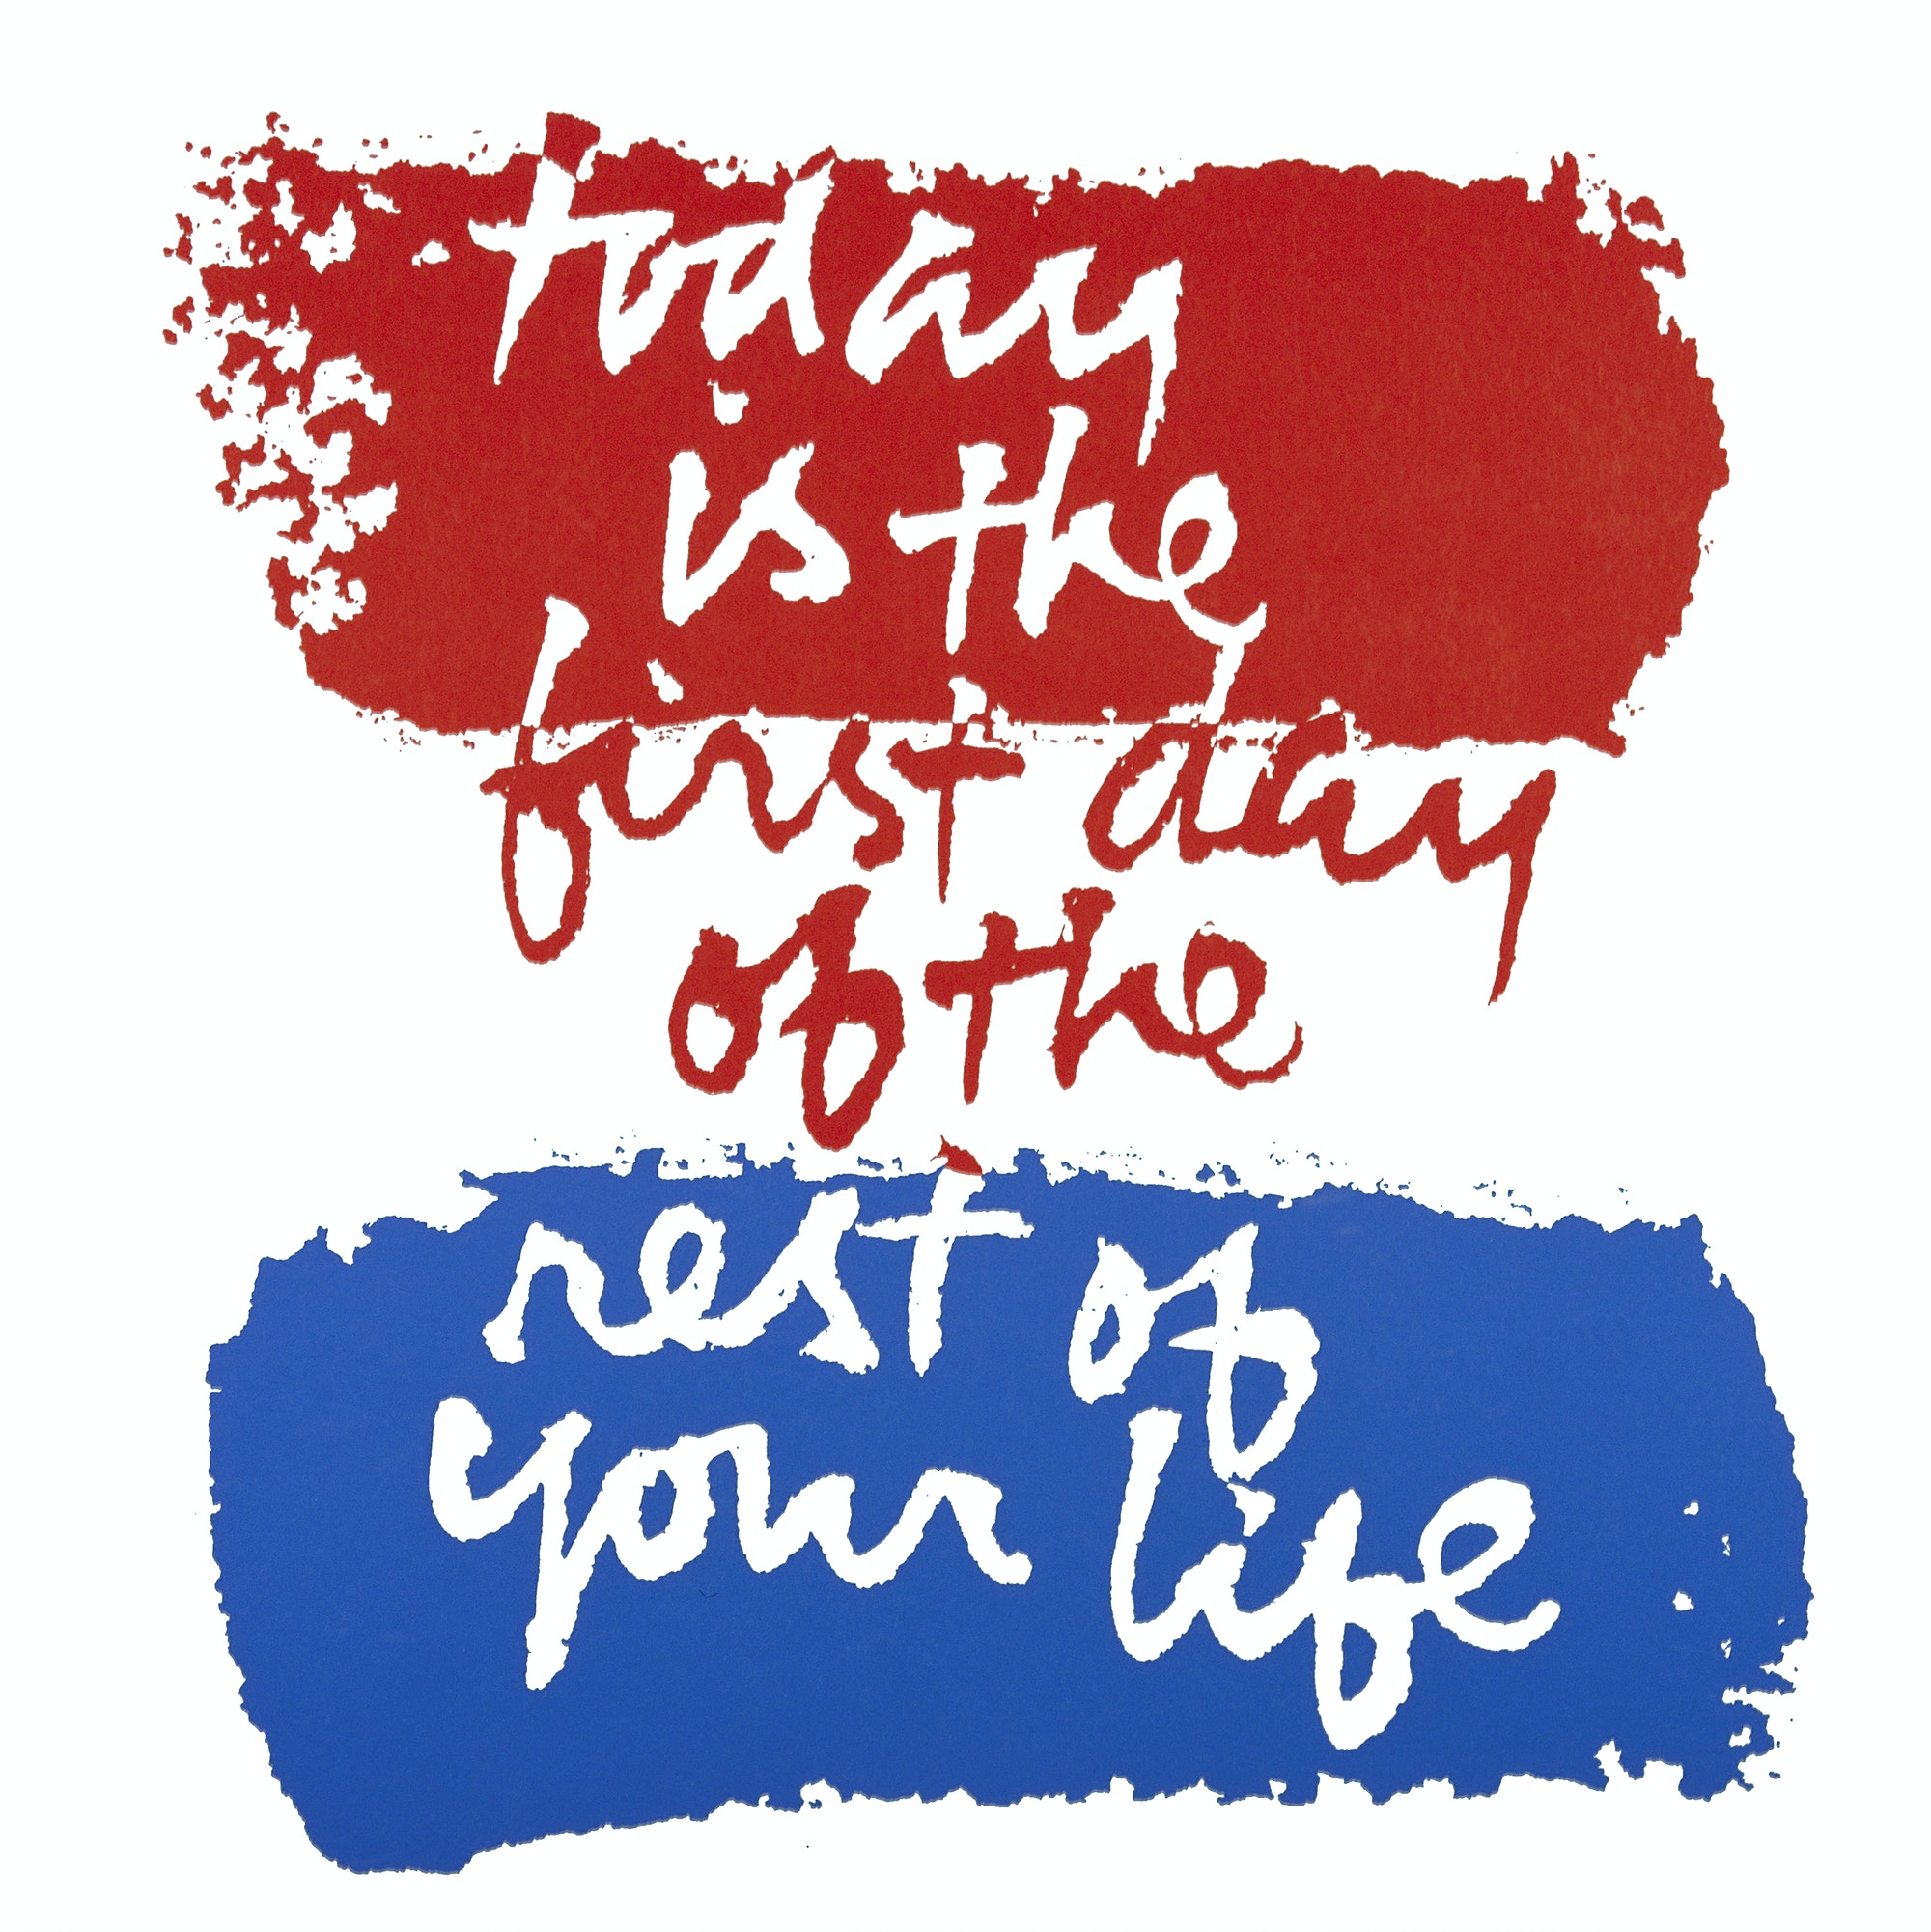 today
is the
first day
of the
rest of
your life